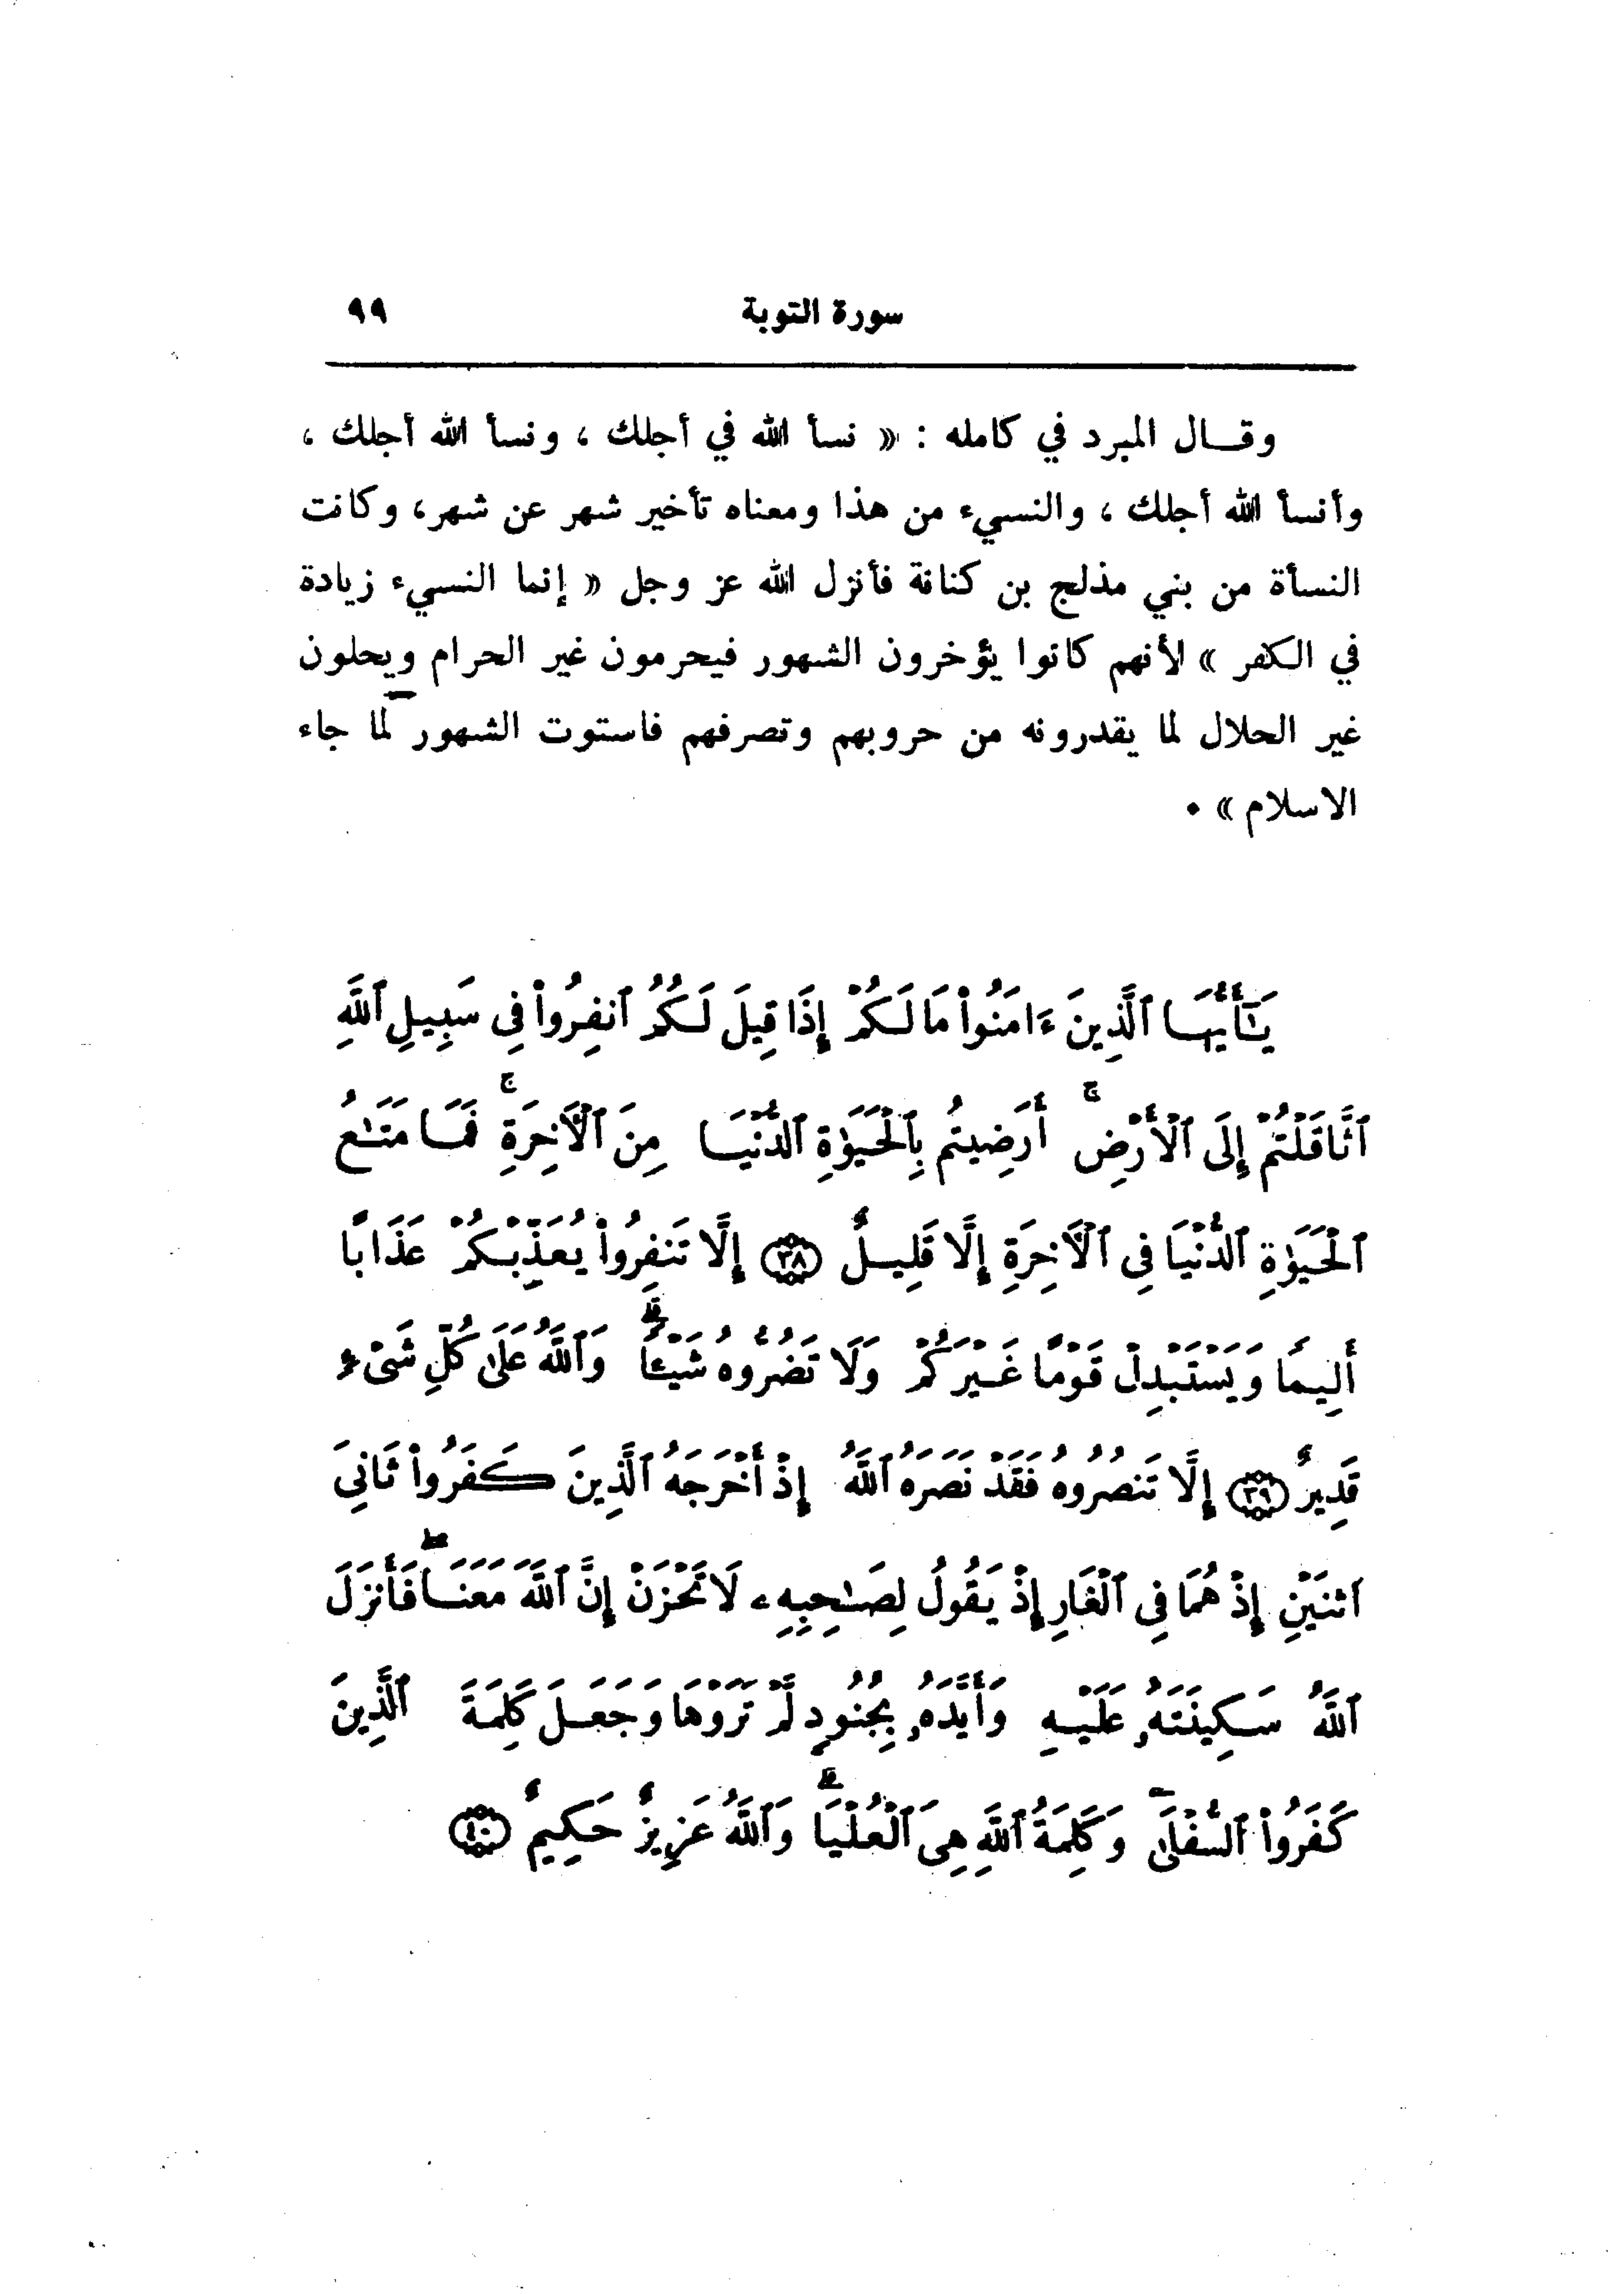 سورة التوبة ٩٩
وقال المبرد في كامله : « نسأ الله في أجلك ، ونسأ الله أجلك ،
وأنسأ الله أجلك ، والنسيء من هذا ومعناه تأخير شهر عن شهر، وكانت
النسأة من بني مذلج بن كنانة فأنزل الله عز وجل « إنما النسيء زيادة
في الكفر » لأنهم كانوا يؤخرون الشهور فيحرمون غير الحرام ويحلون
غير الحلال لما يقدرونه من حروبهم وتصرفهم فاستوت الشهور لما جاء
الاسلام » .
يَـٰٓأَيُّهَا ٱلَّذِينَ ءَامَنُوا۟ مَا لَكُمْ إِذَا قِيلَ لَكُمُ ٱنفِرُوا۟ فِى سَبِيلِ ٱللَّهِ
ٱثَّاقَلْتُمْ إِلَى ٱلْأَرْضِ ۚ أَرَضِيتُم بِٱلْحَيَوٰةِ ٱلدُّنْيَا مِنَ ٱلْـَٔاخِرَةِ ۚ فَمَا مَتَـٰعُ
ٱلْحَيَوٰةِ ٱلدُّنْيَا فِى ٱلْـَٔاخِرَةِ إِلَّا قَلِيلٌ ﴿٣٨﴾ إِلَّا تَنفِرُوا۟ يُعَذِّبْكُمْ عَذَابًا
أَلِيمًا وَيَسْتَبْدِلْ قَوْمًا غَيْرَكُمْ وَلَا تَضُرُّوهُ شَيْـًٔا ۗ وَٱللَّهُ عَلَىٰ كُلِّ شَىْءٍ
قَدِيرٌ ﴿٣٩﴾ إِلَّا تَنصُرُوهُ فَقَدْ نَصَرَهُ ٱللَّهُ إِذْ أَخْرَجَهُ ٱلَّذِينَ كَفَرُوا۟ ثَانِىَ
ٱثْنَيْنِ إِذْ هُمَا فِى ٱلْغَارِ إِذْ يَقُولُ لِصَـٰحِبِهِۦ لَا تَحْزَنْ إِنَّ ٱللَّهَ مَعَنَا ۖ فَأَنزَلَ
ٱللَّهُ سَكِينَتَهُۥ عَلَيْهِ وَأَيَّدَهُۥ بِجُنُودٍ لَّمْ تَرَوْهَا وَجَعَلَ كَلِمَةَ ٱلَّذِينَ
كَفَرُوا۟ ٱلسُّفْلَىٰ ۗ وَكَلِمَةُ ٱللَّهِ هِىَ ٱلْعُلْيَا ۗ وَٱللَّهُ عَزِيزٌ حَكِيمٌ ﴿٤٠﴾